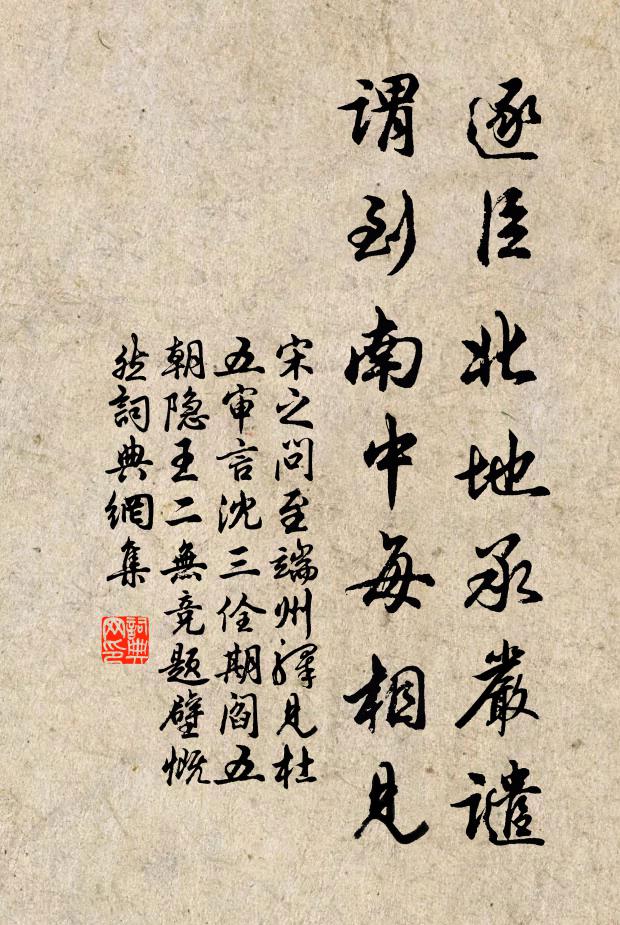 逐臣北地承嚴譴
謂到南中每相見
宋之問至端州驛見杜
五审言沈三佺期阎五
朝隐王二無竞题壁慨
然詞典網集
詞典
网印